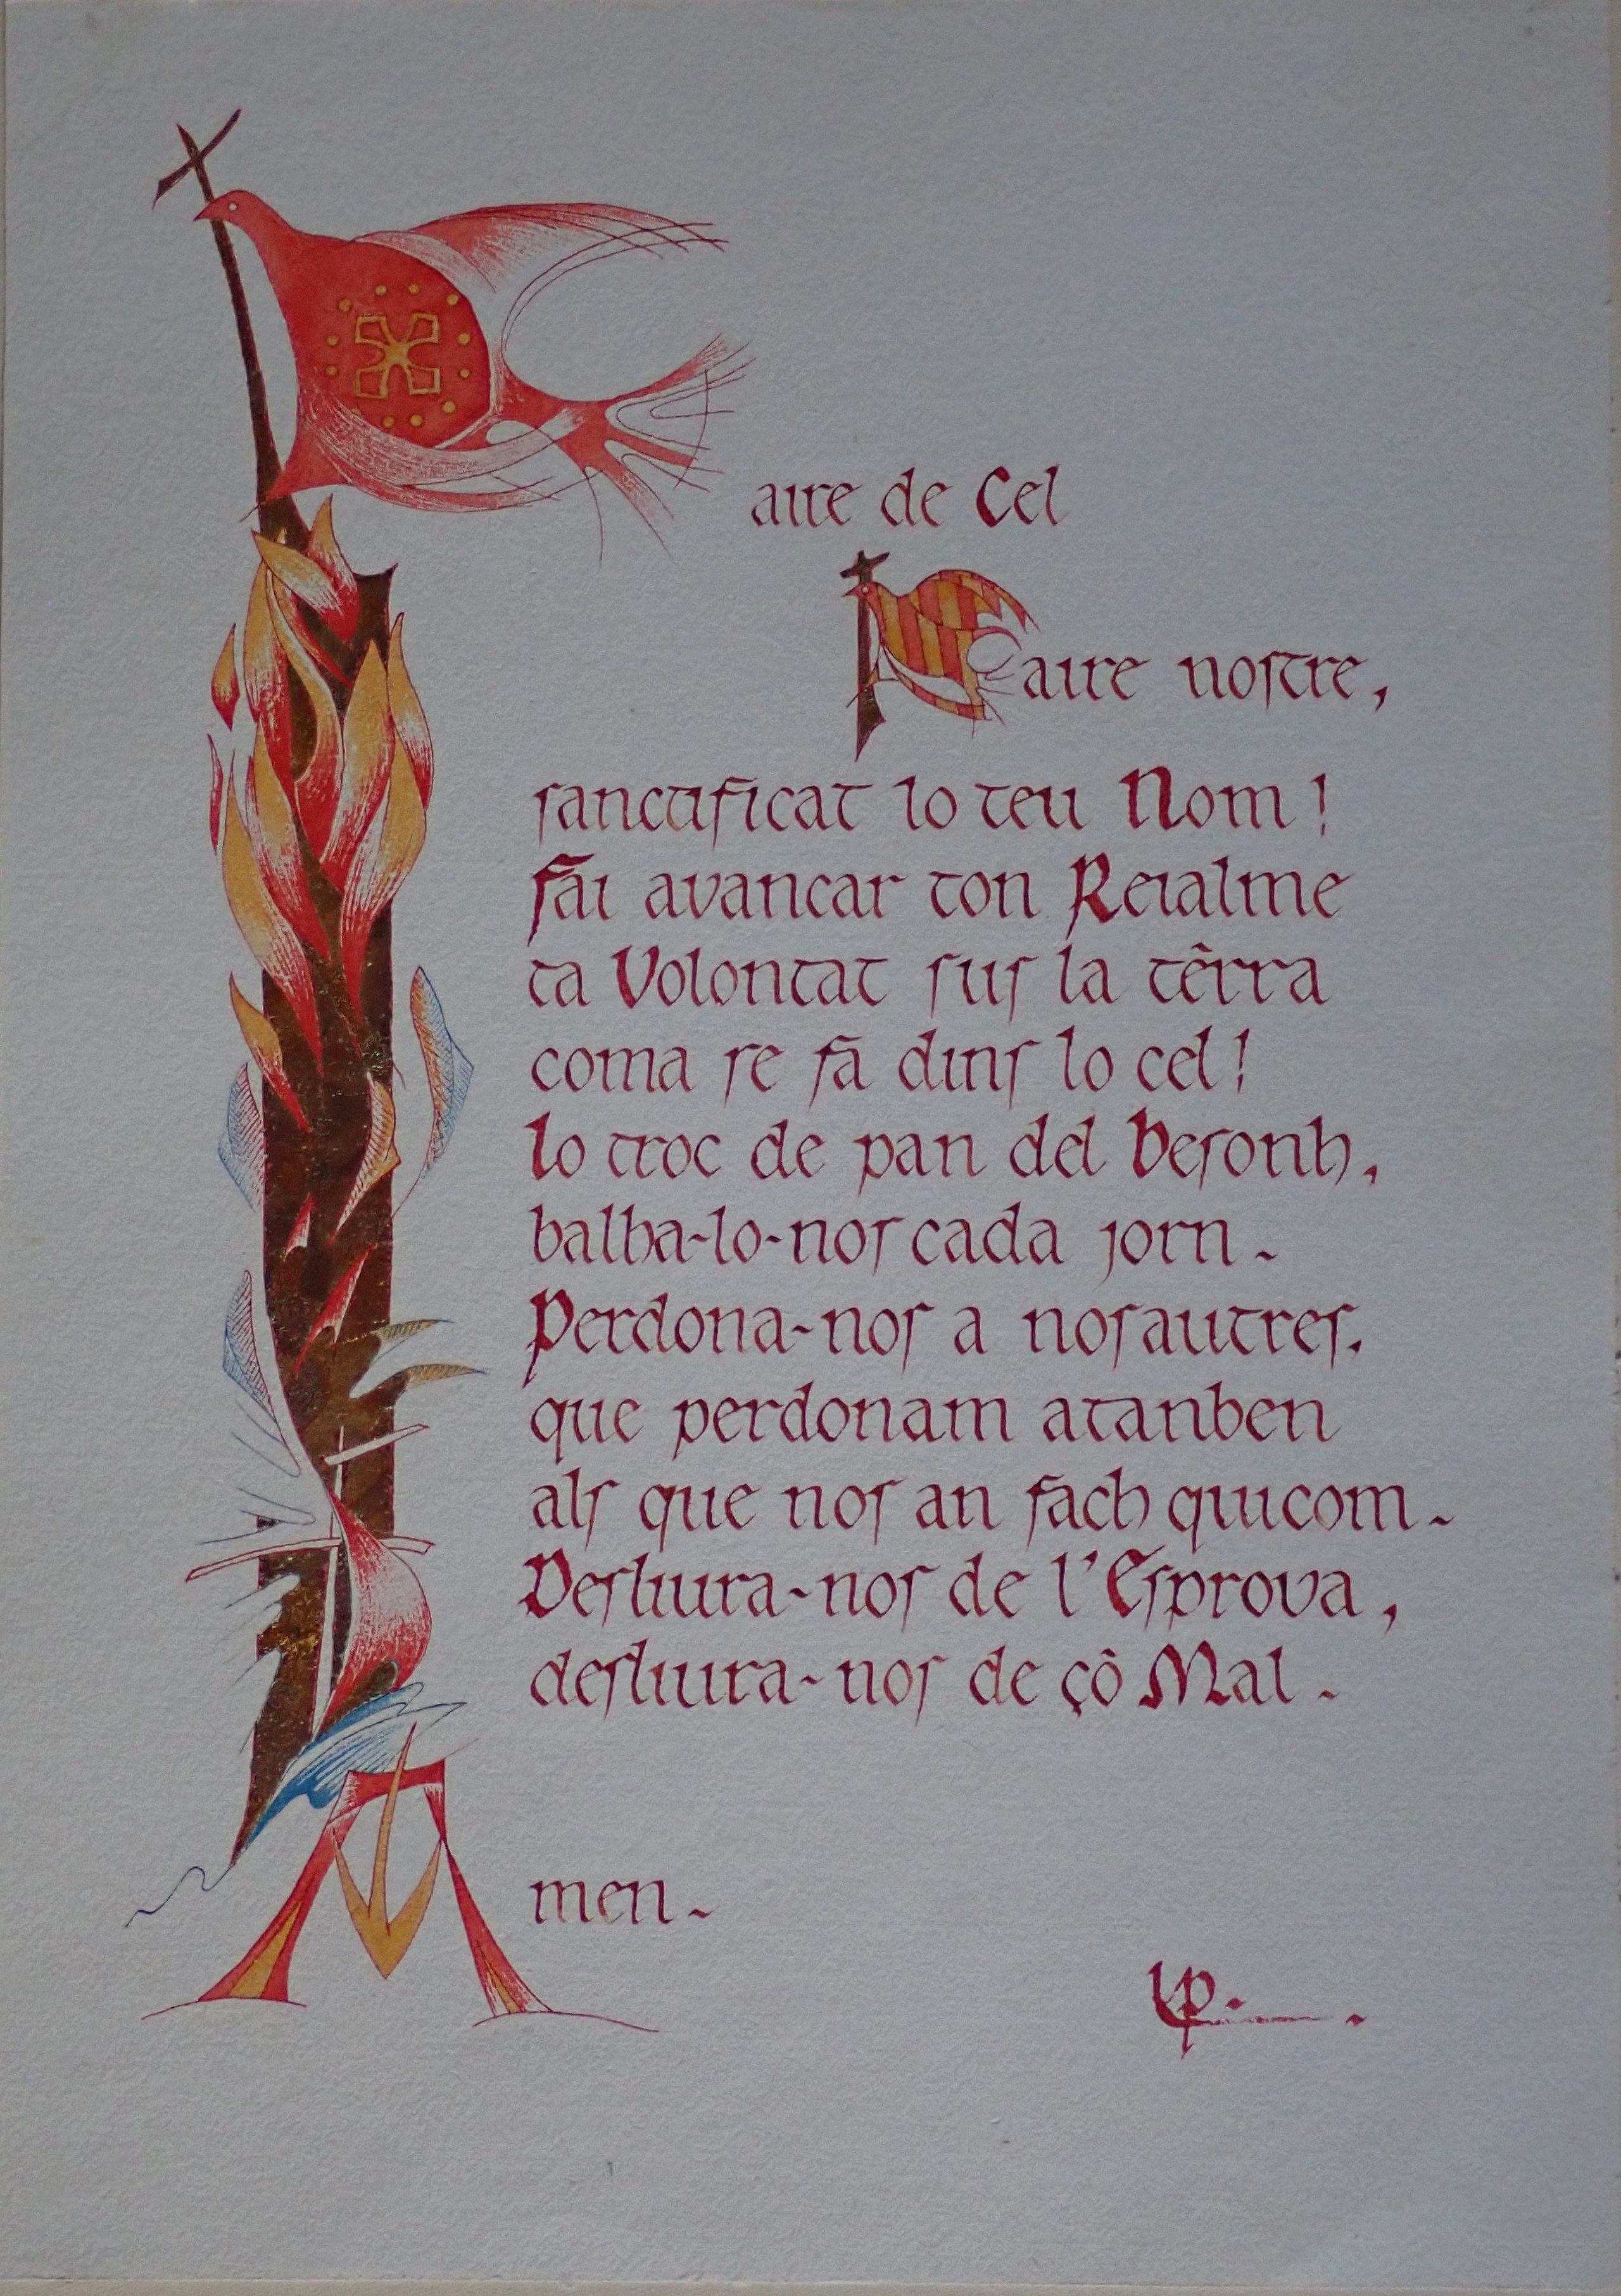 Paire de Cel
Paire nostre,
sanctificat lo teu Nom !
Fai avancar ton Reialme
ta Volontat sus la tèrra
coma se fa dins lo cel !
lo troc de pan del besonh,
balha-lo-nos cada jorn -
Perdona-nos a nosautres.
que perdonam atanben
als que nos an fach quicom -
Desliura-nos de l'Esprova,
desliura-nos de çò Mal -
Amen -